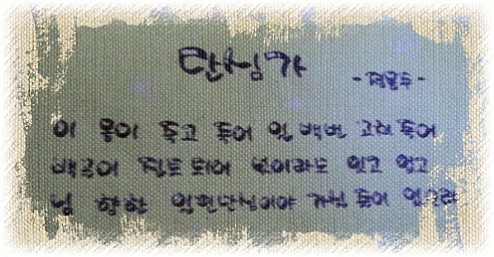 단심가
-정몽주-
이 몸이 죽고 죽어 일백번 고쳐 죽어
백골이 진토 되어 넋이라도 있고 없고
님 향한 일편단심이야 가실 줄이 있으랴